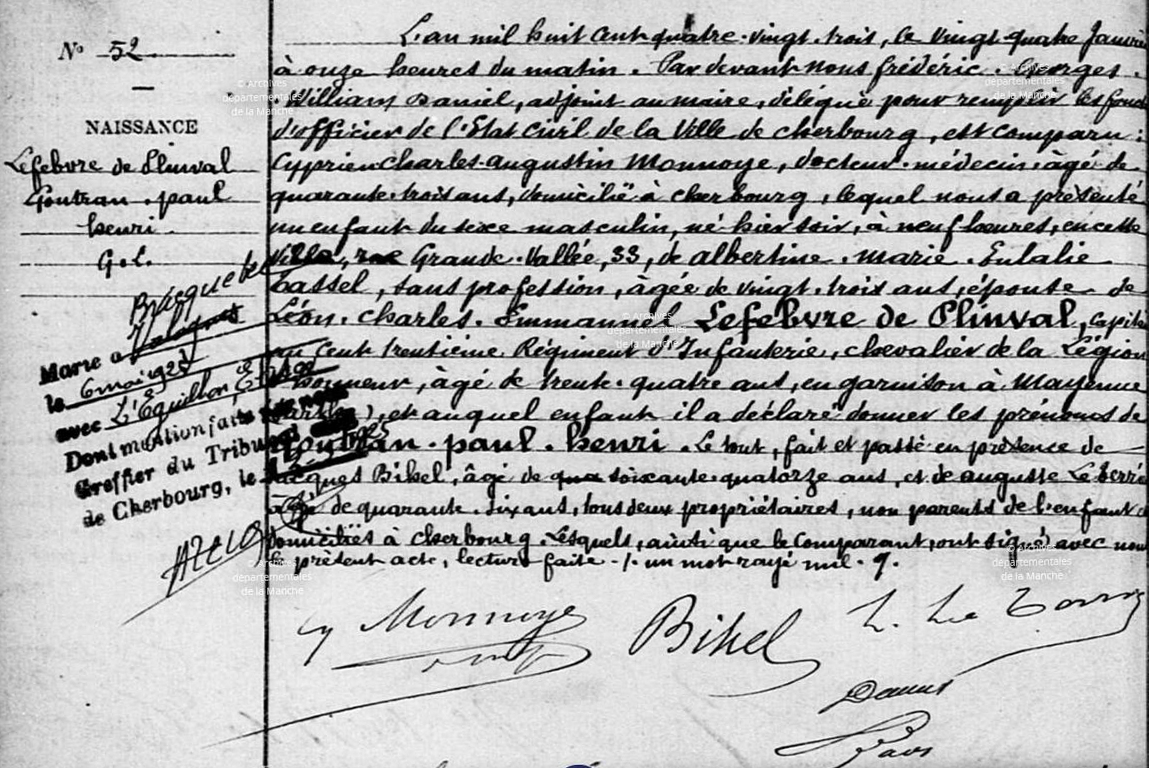 N° 52
NAISSANCE
Lefebvre de Plinval
Gontran . paul
henri .
G.t.
Bricquebec
Valognes
Marié à
le 6 mai 1925
avec L'Equilbec
Dont mention faite par nous
Greffier du Tribunal
de Cherbourg, le
L'an mil huit cent quatre-vingt-trois, le vingt-quatre Janvier
à onze heures du matin . Par devant nous frédéric Georges
William Daniel, adjoint au maire, délégué pour remplir les fonct
d'officier de l'Etat Civil de la Ville de cherbourg, est comparu :
Cyprien Charles Augustin Monnoye, docteur-médecin, âgé de
quarante-trois ans, domicilié à cherbourg, lequel nous a présenté
un enfant du sexe masculin, né hier soir, à neuf heures, en cette
ville, rue Grande-Vallée, 33, de albertine . marie . Eulalie
Cassel, sans profession, âgée de vingt-trois ans, épouse de
Léon . Charles . Emmanuel Lefebvre de Plinval, capita
au Cent trentième Régiment d'Infanterie, chevalier de la Légion
honneur, âgé de trente-quatre ans, en garnison à Mayenne
(Sarthe), et auquel enfant il a déclaré donner les prénoms de
Gontran . paul . henri . Le tout, fait et passé en présence de
Jacques Bihel, âgé de qua soixante-quatorze ans, et de auguste Le
âgé de quarante-six ans, tous deux propriétaires, non parents de l'enfant
domiciliés à cherbourg . Lesquels, ainsi que le Comparant, ont signé avec nous
le présent acte, lecture faite ./. un mot rayé nul . 9.
Cy Monnoye
Bihel
© Archives
départementales
de la Manche